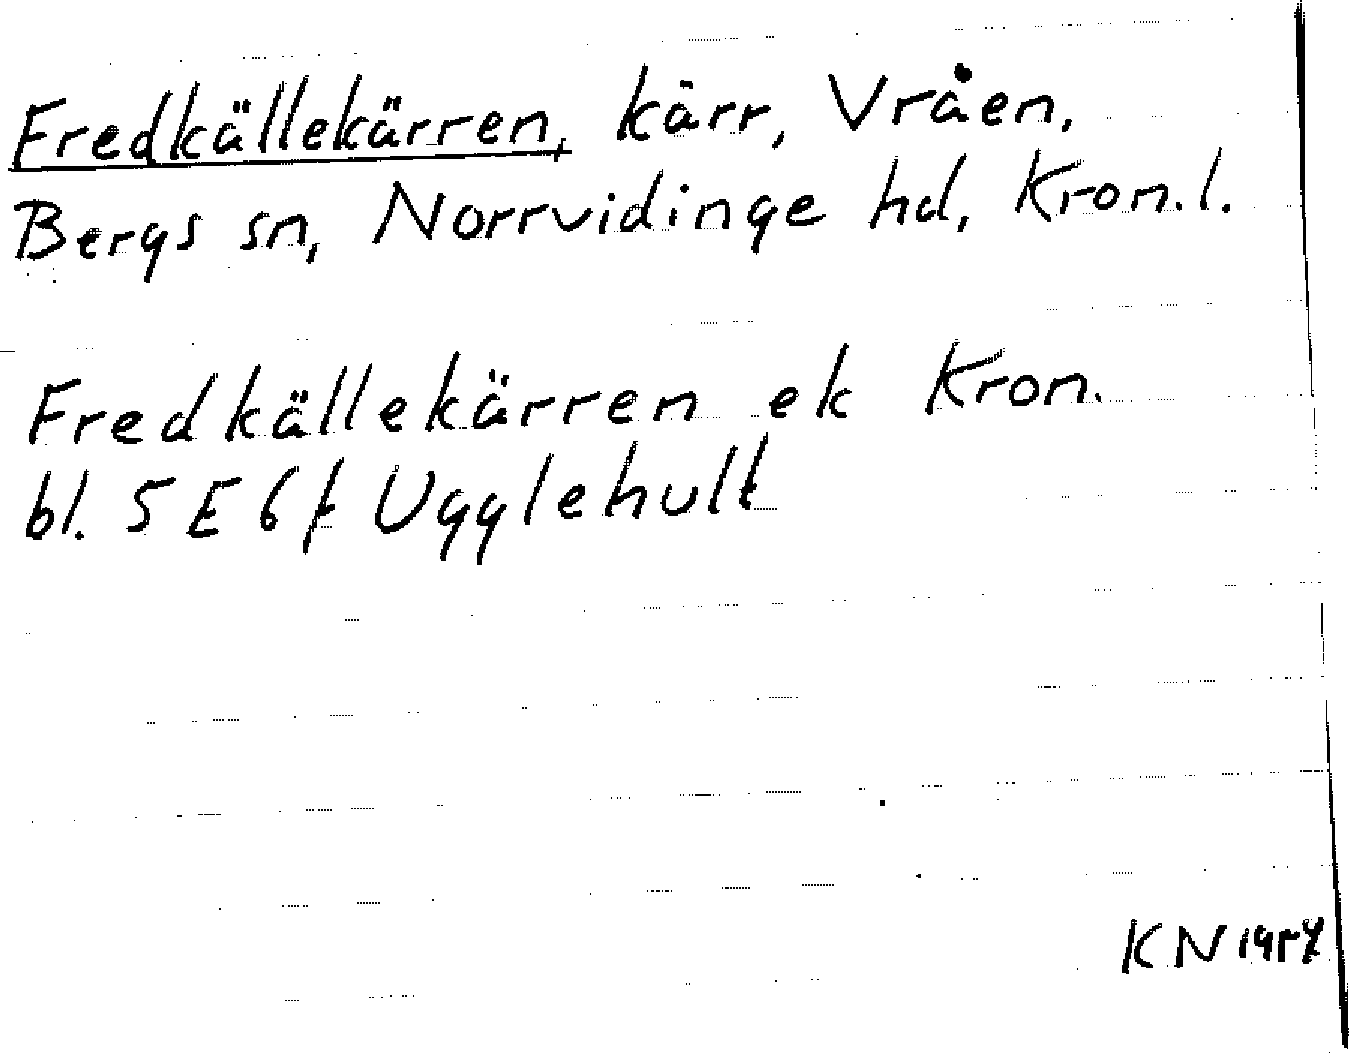 Fredkällekärren, kärr, Vråen,
Bergs sn, Norrvidinge hd, Kron.l.
Fredkällekärren ek Kron.
bl. 5 E 6 f Ugglehult
KN